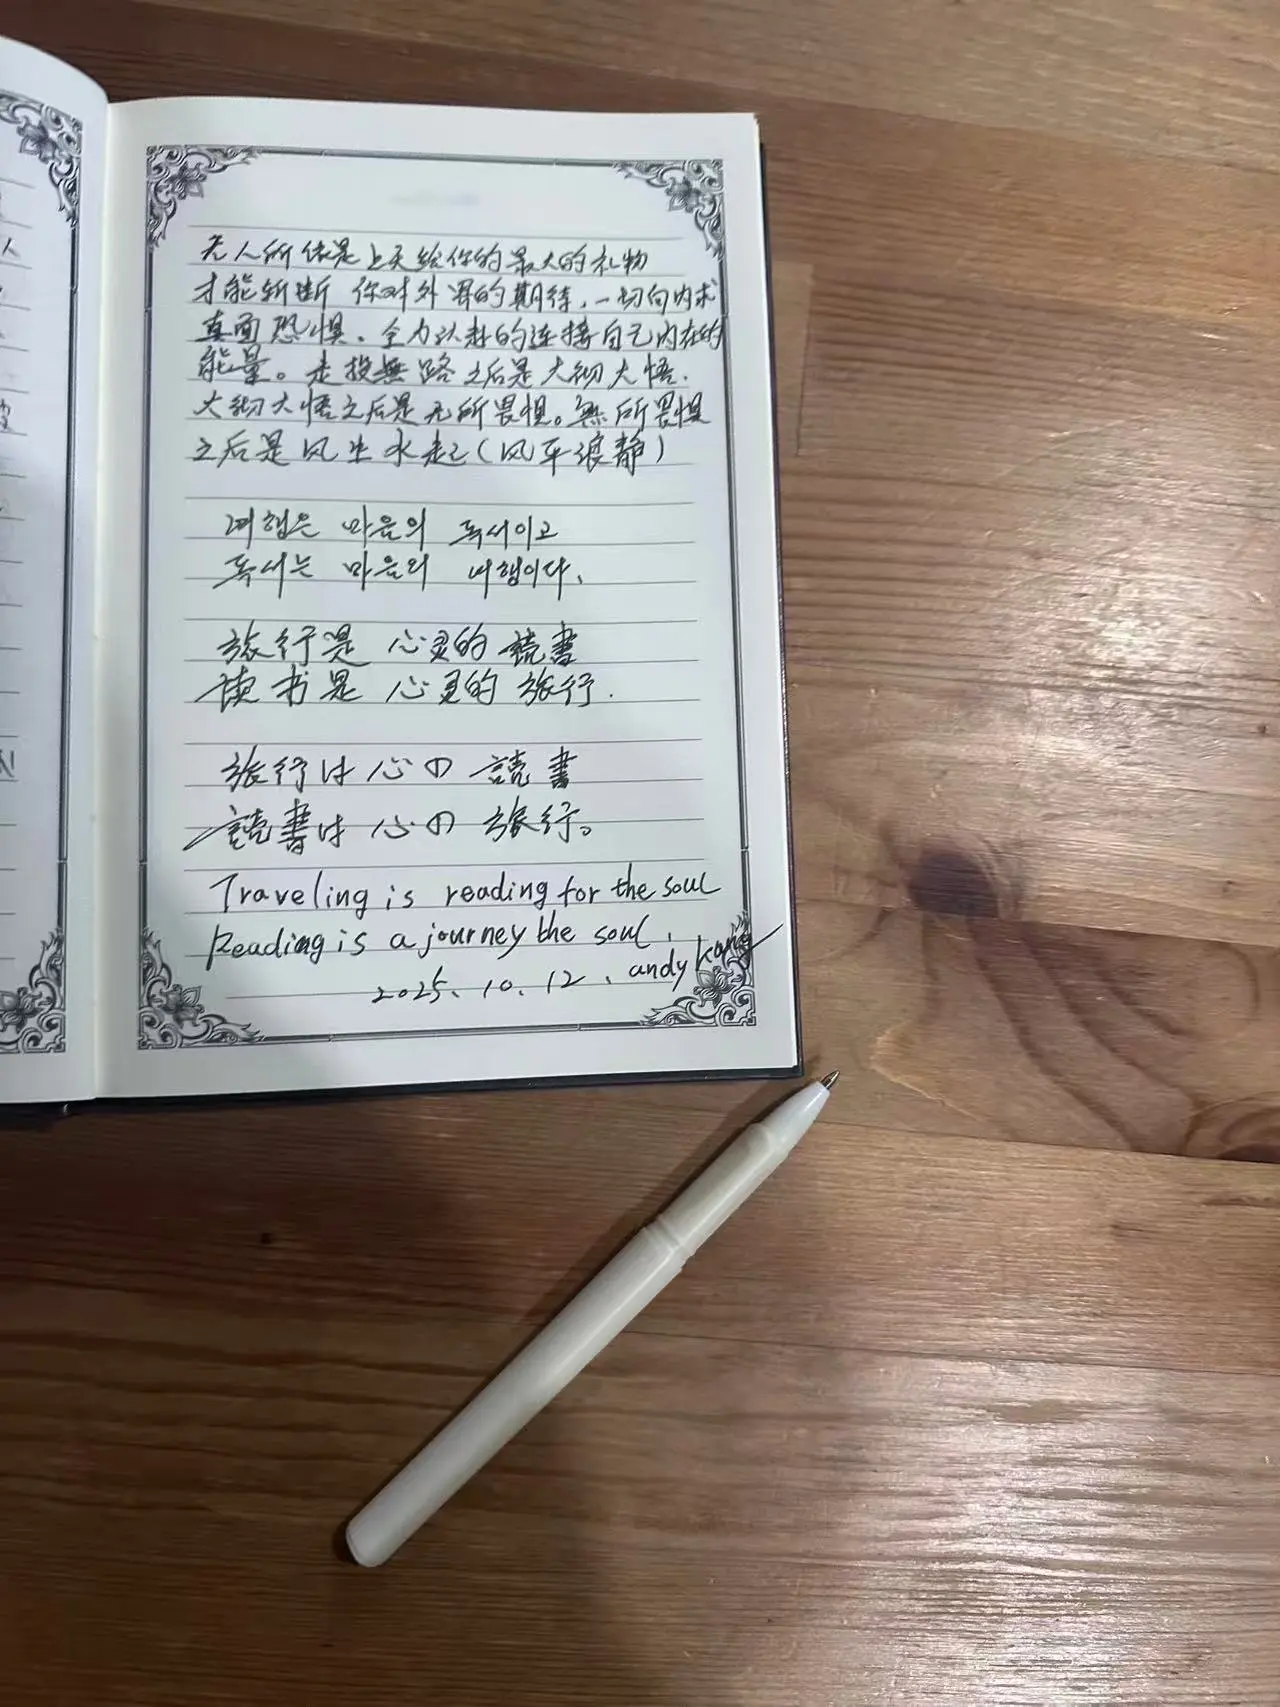 人
无人所依是上天给你的最大的礼物
才能斩断 你对外界的期待,一切向内求
真面恐惧、全力以赴的连接自己内在的
能量。走投無路之后是大彻大悟.
大彻大悟之后是无所畏惧。無所畏惧
之后是风生水起(风平浪静)
여행은 마음의 독서이고
독서는 마음의 여행이다.
旅行是 心灵的 読書
读书是 心灵的 旅行.
旅行は心の 読書
読書は心の 旅行。
Traveling is reading for the soul
Reading is a journey the soul.
2025. 10. 12 . andy kang